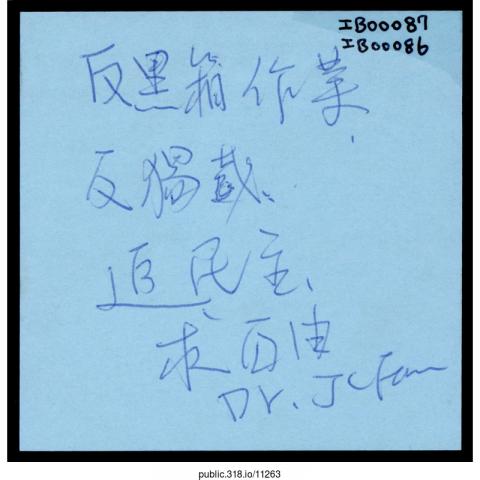 IB00087
IB00086
反黑箱作業、
反獨裁、
追民主、
求自由
Dr. JC Fann
public.318.io/11263